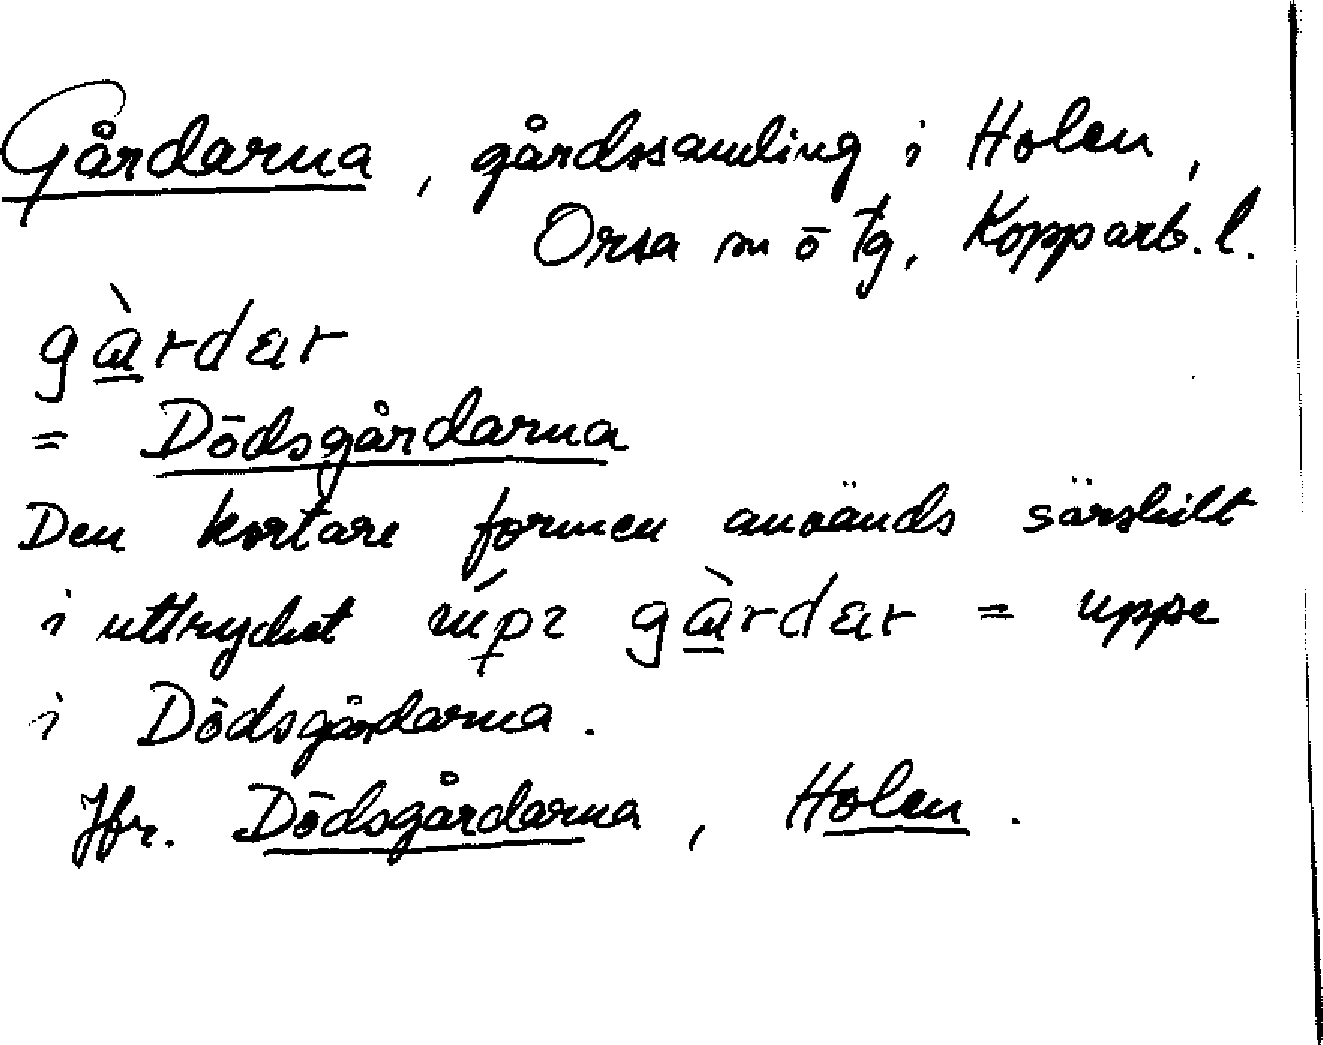 Gårdarna, gårdssamling i Holen,
Orsa sn ō tg, Kopparb. l.
gàrdar
= Dödsgårdarna
Den kortare formen används särskilt
i uttrycket gàrdar = uppe
i Dödsgårdarna.
Jfr. Dödsgårdarna, Holen.